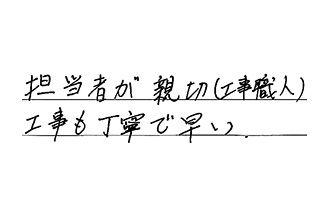 担当者が親切(工事職人)
工事も丁寧で早い.